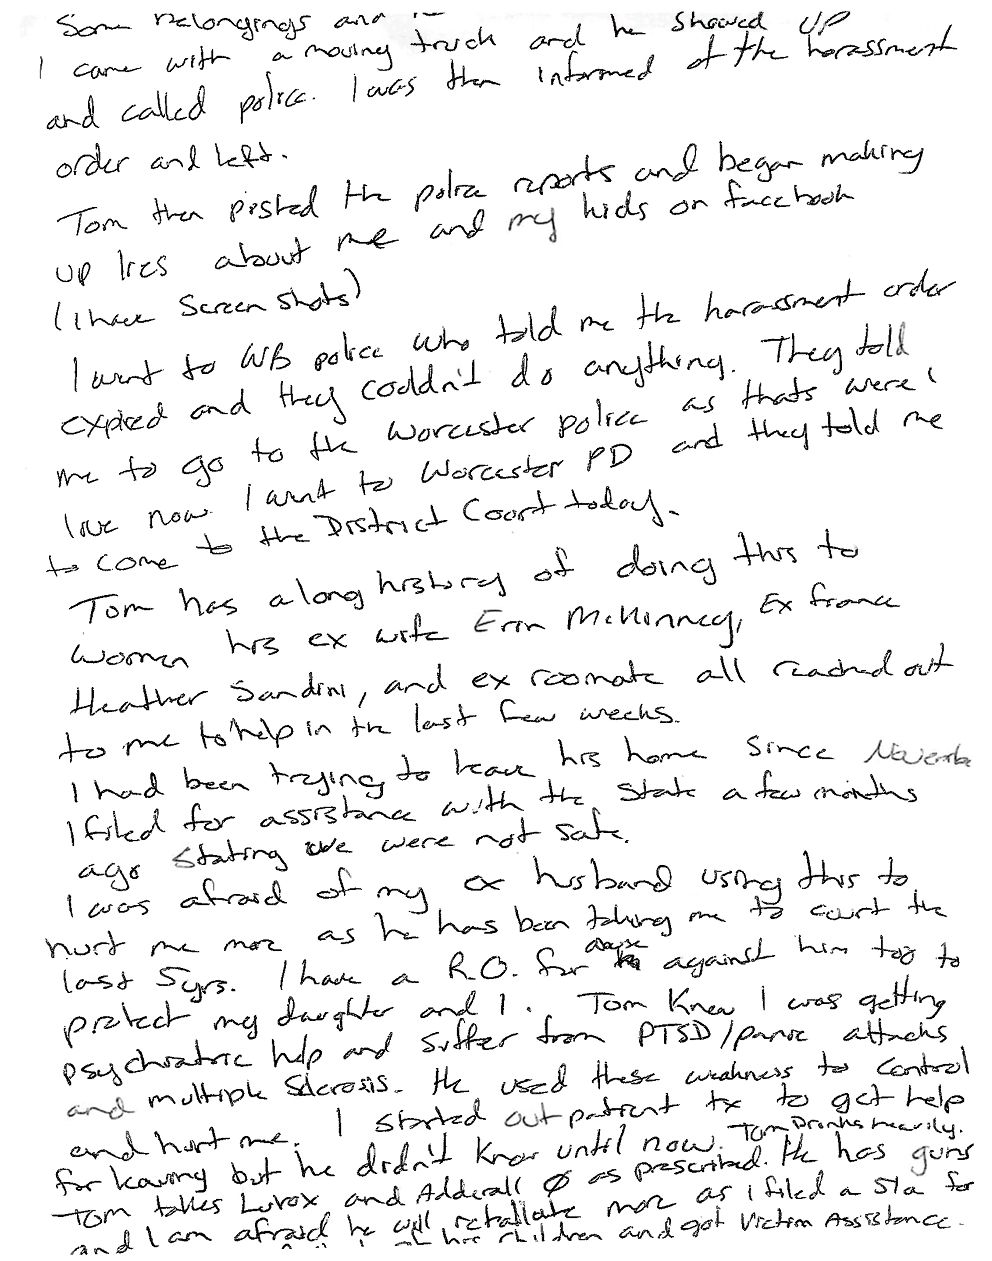 Some belongings and
I came with a moving truck and he showed UP
and called police. I was then informed of the harassment
order and left.
Tom then posted the police reports and began making
up lies about me and my kids on facebook
(I have Screen shots)
I went to WB police who told me the harassment order
expired and they couldn't do anything. They told
me to go to the Worcester police as thats were i
live now. I went to Worcester PD and they told me
to come to the District Court today.
Tom has a long history of doing this to
women his ex wife Erin McKinney, Ex fiance
Heather Sandini, and ex roomate all reached out
to me to help in the last few weeks.
I had been trying to leave his home since November
I filed for assistance with the state a few months
ago stating we were not safe.
I was afraid of my ex husband using this to
hurt me more as he has been taking me to court the
last 5yrs. I have a R.O. for abuse against him too to
protect my daughter and I. Tom Knew I was getting
psychiatric help and suffer from PTSD/panic attacks
and multiple Sclerosis. He used these weakness to control
and hurt me. I started out patient tx to get help
for leaving but he didn't know until now. Tom Drinks heavily.
Tom takes Luvox and Adderall Ø as prescribed. He has guns
and I am afraid he will retaliate more as i filed a 51a for
his children and got Victim Assistance.